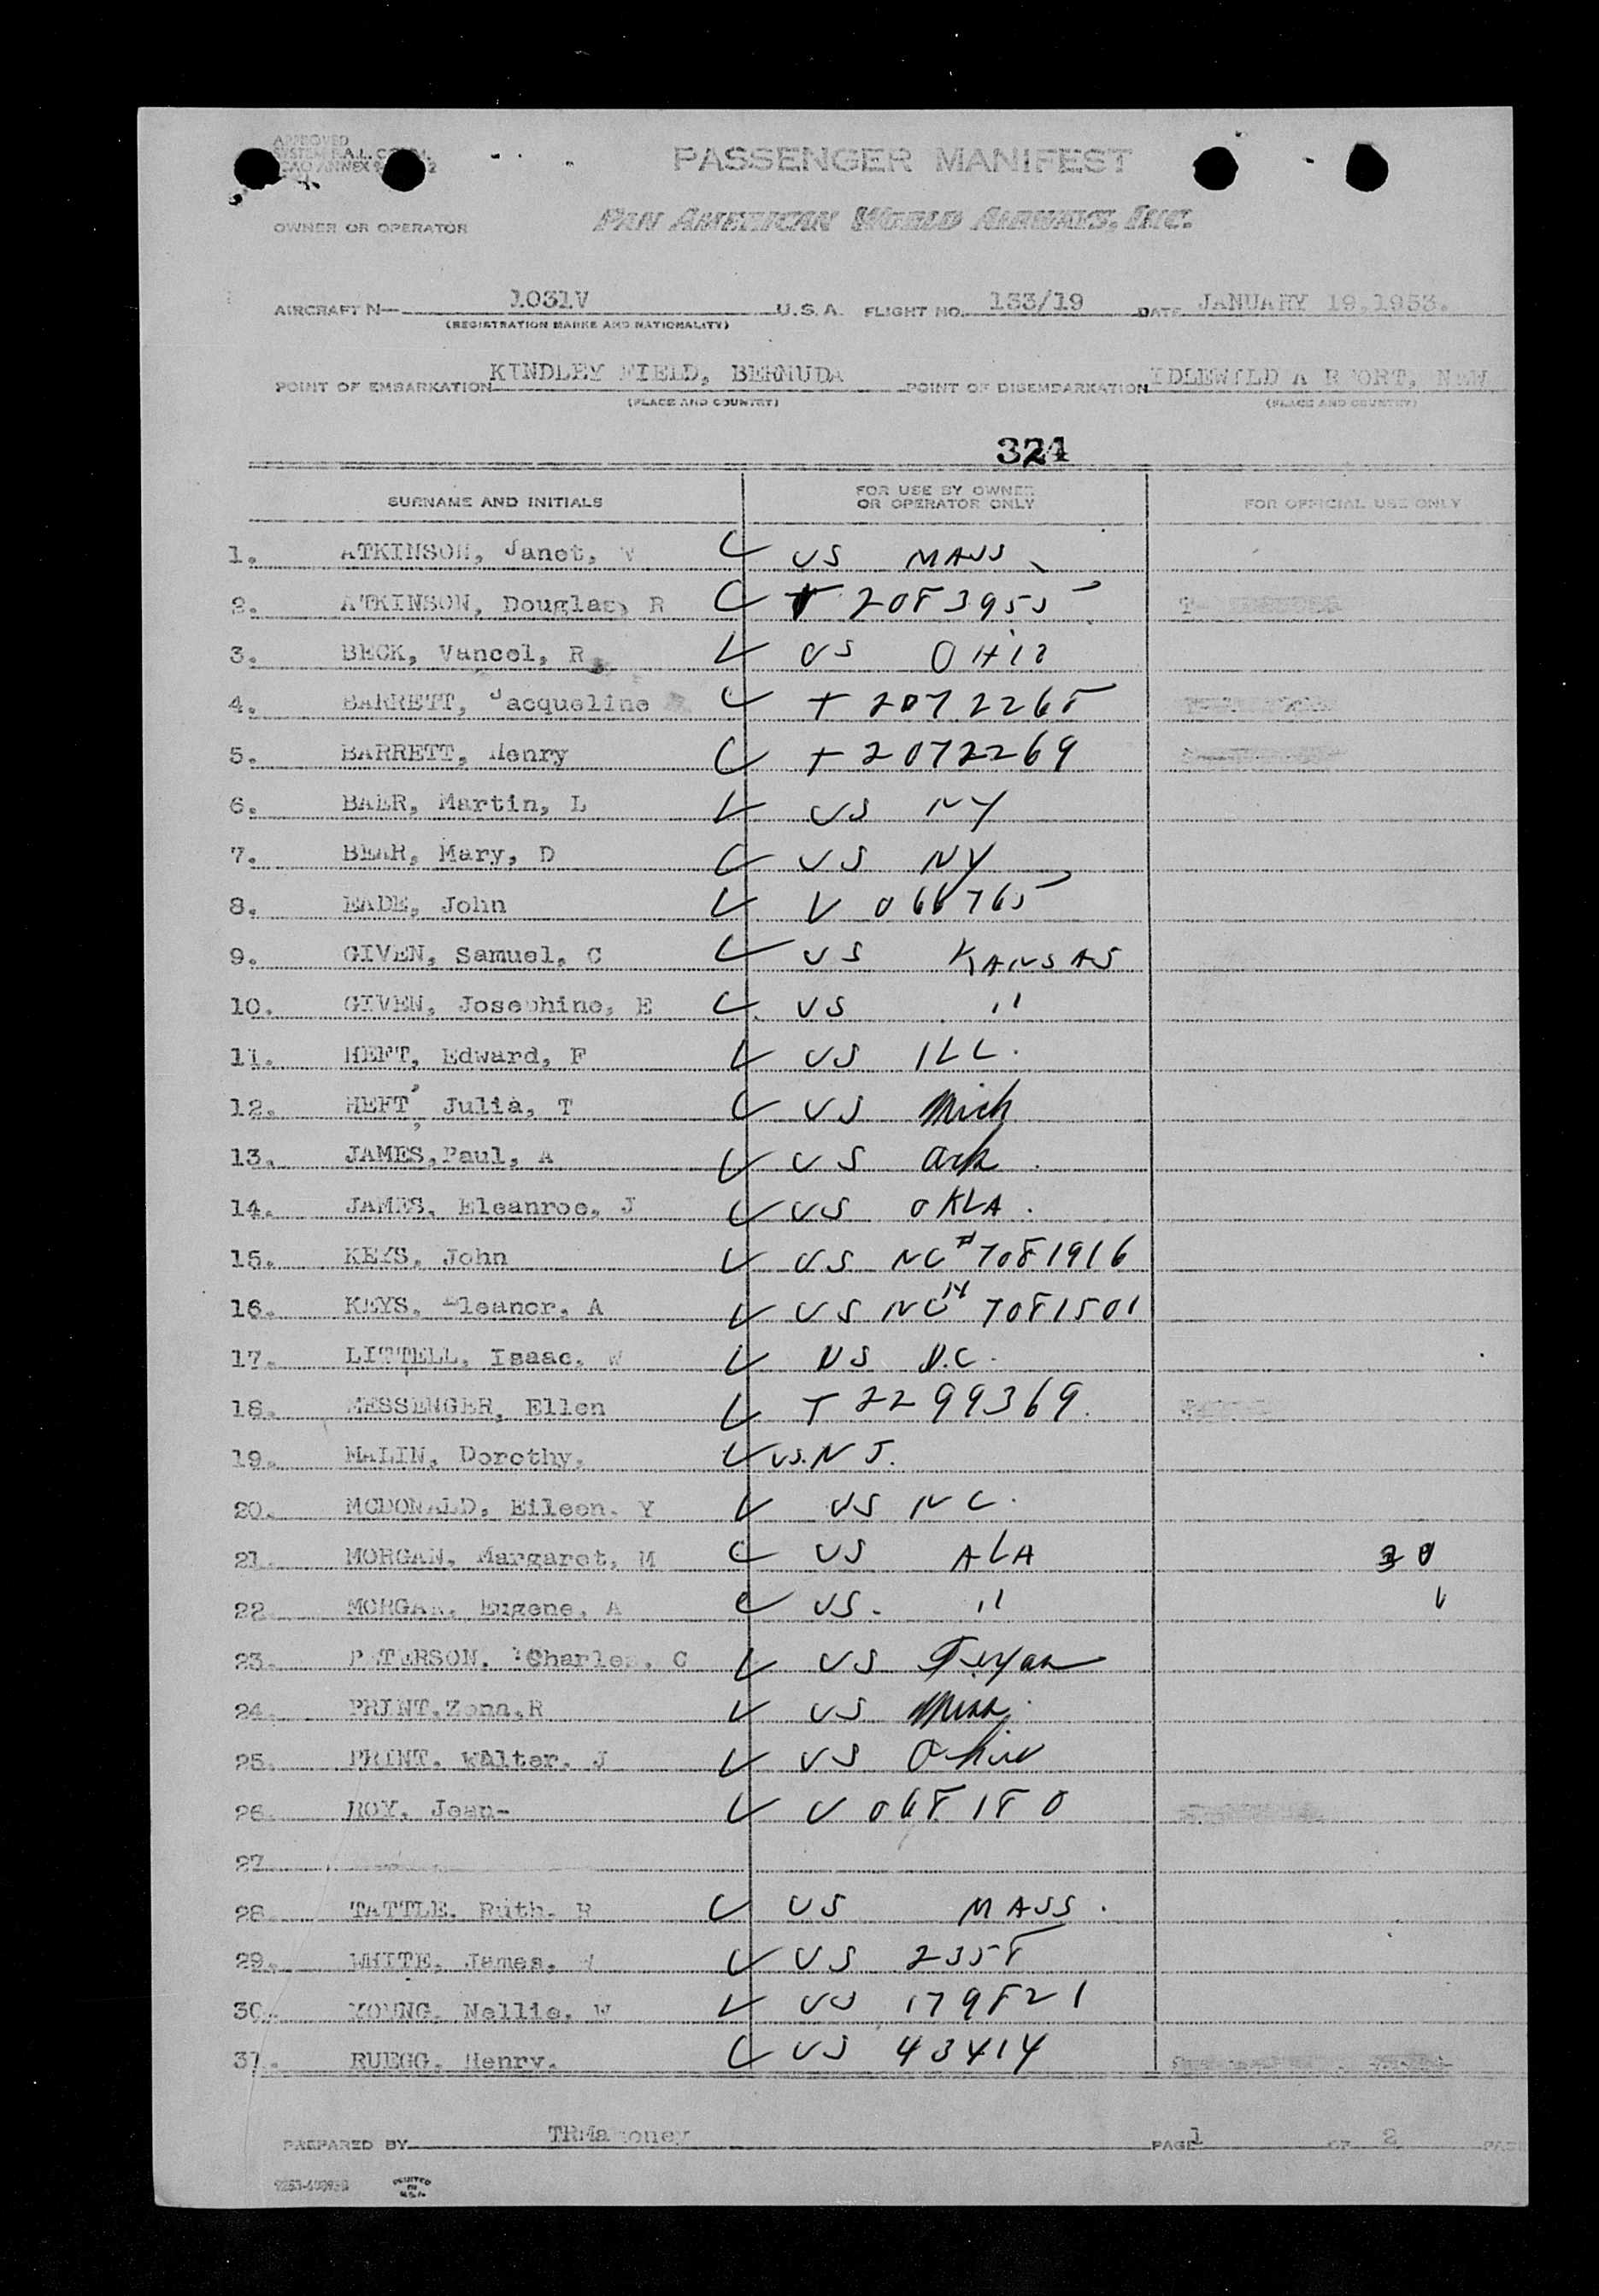 APPROVED
PASSENGER MANIFEST
OWNER OR OPERATOR PAN AMERICAN WORLD AIRWAYS, INC.
AIRCRAFT N— 1031V U.S.A. FLIGHT NO. 133/19 DATE JANUARY 19,1953.
(REGISTRATION MARKS AND NATIONALITY)
POINT OF EMBARKATION KINDLEY FIELD, BERMUDA POINT OF DISEMBARKATION IDLEWILD A R ORT, NEW
(PLACE AND COUNTRY) (PLACE AND COUNTRY)
324
SURNAME AND INITIALS FOR USE BY OWNER OR OPERATOR ONLY FOR OFFICIAL USE ONLY
1. ATKINSON, Janet, W US MASS
2. ATKINSON, Douglas, R T 2083955
3. BECK, Vancel, R US OHIO
4. BARRETT, Jacqueline T 2072268
5. BARRETT, Henry T 2072269
6. BAER, Martin, L US NY
7. BEAR, Mary, D US NY
8. EADE, John V 066765
9. GIVEN, Samuel, C US KANSAS
10. GIVEN, Josephine, E US "
11. HEFT, Edward, F US ILL.
12. HEFT, Julia, T US Mich
13. JAMES,Paul, A US Ark.
14. JAMES, Eleanroe, J US OKLA.
15. KEYS, John US NC# 7081916
16. KEYS, Eleanor, A US NC# 7081501
17. LITTELL, Isaac, W US D.C.
18. MESSENGER, Ellen T 2299369.
19. MALIN, Dorothy. US. N J.
20. MCDONALD, Eileen. Y US NC.
21. MORGAN, Margaret, M US ALA
22. MORGAN, Eugene, A US. "
23. PETERSON, Charles, C US Texas
24. PRINT,Zona,R US
25. PRINT. Walter. J US Ohio
26. ROY, Jean- V 068180
27.
28. TATTLE. Ruth. R US MASS.
29. WHITE, James, W US 2358
30. YOUNG, Nellie, W US 179821
31. RUEGG, Henry. US 43414
PREPARED BY TRMahoney PAGE 1 OF 2
PRINTED IN U.S.A.